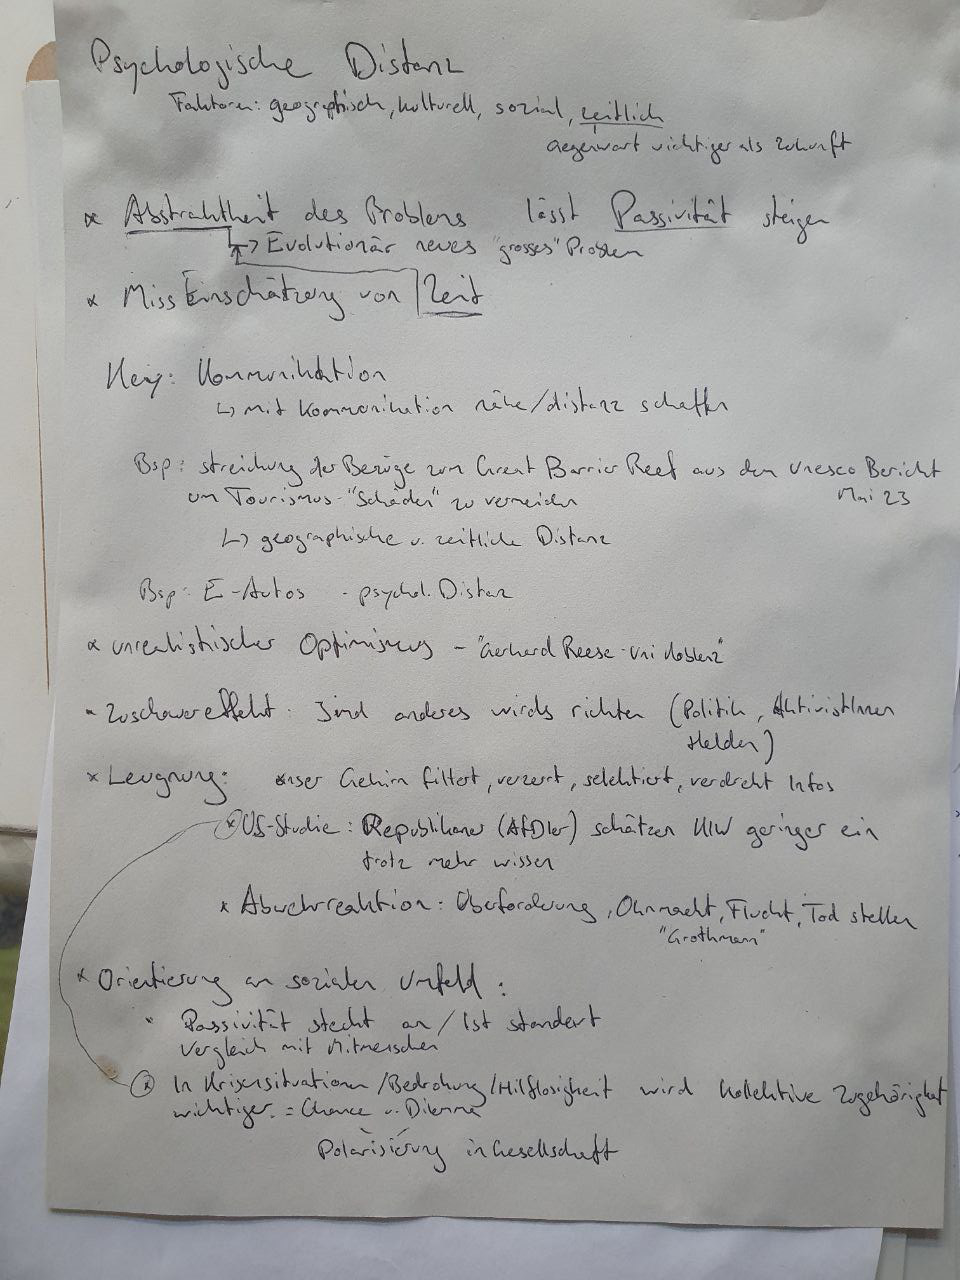 Psychologische Distanz
Faktoren: geographisch, kulturell, sozial, zeitlich
Gegenwart wichtiger als Zukunft
* Abstraktheit des Problems lässt Passivität steigen
↳ Evolutionär neues "grosses" Problem
* Miss Einschätzung von Zeit
Kommunikation
↳ mit Kommunikation nähe/distanz schaffen
Bsp: streichung der Bezüge zum Great Barrier Reef aus dem Unesco Bericht
um Tourismus-"Schäden" zu vermeiden Mai 23
↳ geographische u. zeitliche Distanz
Bsp: E-Autos - psychol. Distanz
* unrealistischer Optimismus - "Gerhard Reese - Uni Koblenz"
- Zuschauereffekt: Jmd anderes wirds richten (Politik, AktivistInnen
Helden)
* Leugnung: unser Gehirn filtert, verzerrt, selektiert, verdreht Infos
* US-Studie: Republikaner (AfDler) schätzen KIW geringer ein
trotz mehr wissen
* Abwehrreaktion: Überforderung, Ohnmacht, Flucht, Tod stellen
"Grothmann"
* Orientierung an sozialen Umfeld:
* Passivität steckt an / Ist standert
Vergleich mit Mitmenschen
* In Krisensituationen/Bedrohung/Hilflosigkeit wird kollektive Zugehörigkeit
wichtiger. = Chance u. Dilemma
Polarisierung in Gesellschaft